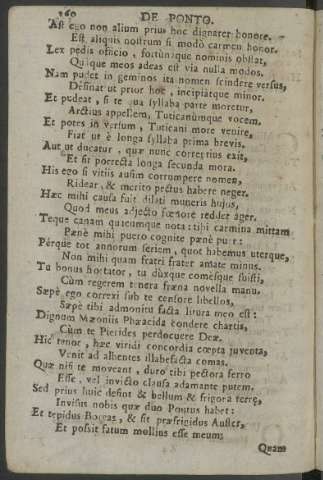 260 DE PONTO.
Ast ego non alium prius hoc dignarer honore.
Est aliquis nostrum si modò carmen honor.
Lex pedis officio, fortunæque nominis obstat,
Quique meos adeas est via nulla modos.
Nam pudet in geminos ita nomen scindere versus,
Desinat ut prior hoc, incipiatque minor.
Et pudeat, si te qua syllaba parte moretur,
Arctius appellem, Tuticanúmque vocem.
Et potes in versum, Tuticani more venire,
Fiat ut è longa syllaba prima brevis.
Aut ut ducatur, quæ nunc correptius exit,
Et sit porrecta longa secunda mora.
His ego si vitiis ausim corrumpere nomen,
Ridear, & merito pectus habere neger.
Hæc mihi causa fuit dilati muneris hujus,
Quod meus adjecto fœnore reddet ager.
Teque canam quacumque nota: tibi carmina mittam
Pænè mihi puero cognite pænè puer:
Pérque tot annorum seriem, quot habemus uterque,
Non mihi quam fratri frater amate minus.
Tu bonus hortator, tu dúxque comésque fuisti,
Cùm regerem tenera fræna novella manu.
Sæpè ego correxi sub te censore libellos,
Sæpè tibi admonitu facta litura meo est:
Dignum Mæoniis Phæacida condere chartis,
Cùm te Pierides perdocuere Deæ.
Hic tenor, hæc viridi concordia cœpta juventa,
Venit ad albentes illabefacta comas.
Quæ nisi te moveant, duro tibi pectora ferro
Esse, vel invicto clausa adamante putem.
Sed prius huic desint & bellum & frigora terræ,
Invisus nobis quæ duo Pontus habet:
Et tepidus Boreas, & sit præfrigidus Auster,
Et possit fatum mollius esse meum:
Quam